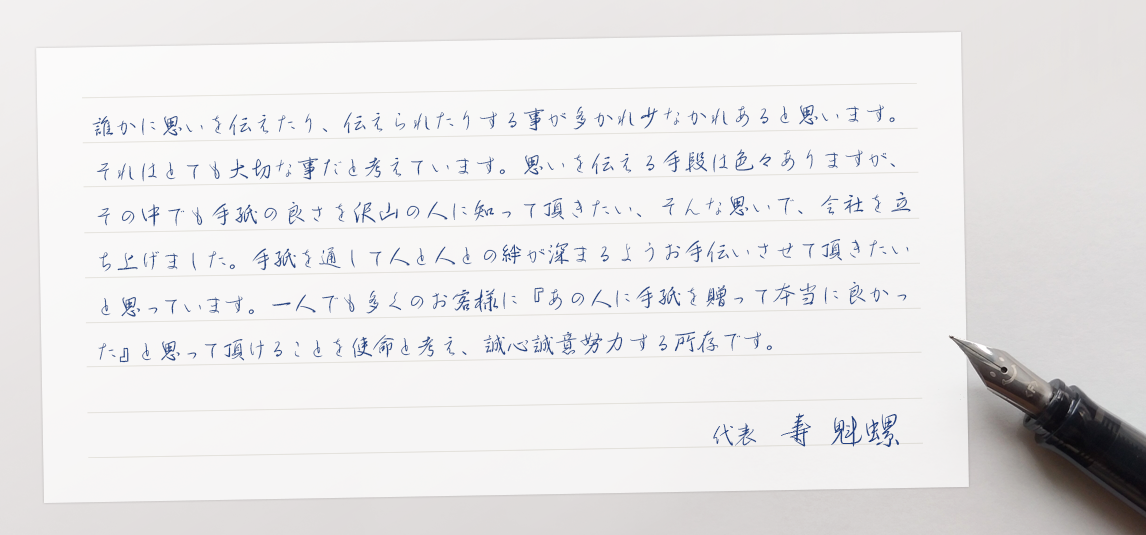 誰かに思いを伝えたり、伝えられたりする事が多かれ少なかれあると思います。
それはとても大切な事だと考えています。思いを伝える手段は色々ありますが、
その中でも手紙の良さを沢山の人に知って頂きたい、そんな思いで、会社を立
ち上げました。手紙を通して人と人との絆が深まるようお手伝いさせて頂きたい
と思っています。一人でも多くのお客様に『あの人に手紙を贈って本当に良かっ
た』と思って頂けることを使命と考え、誠心誠意努力する所存です。
代表 寿 魁螺